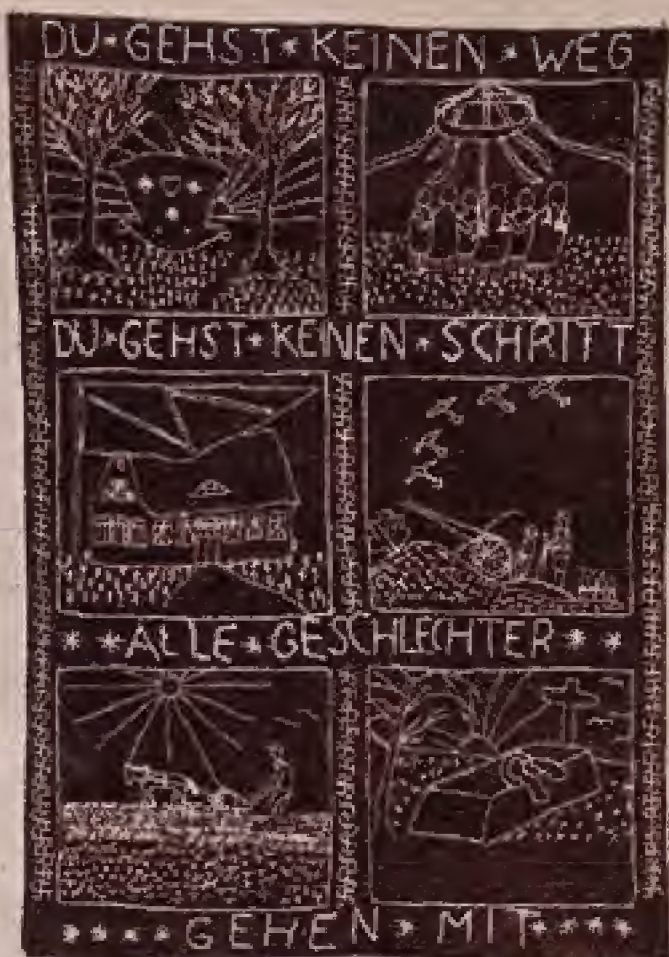 DU * GEHST * KEINEN * WEG
DU * GEHST * KEINEN * SCHRITT
* * ALLE * GESCHLECHTER * *
* * * * GEHEN * MIT * * * *